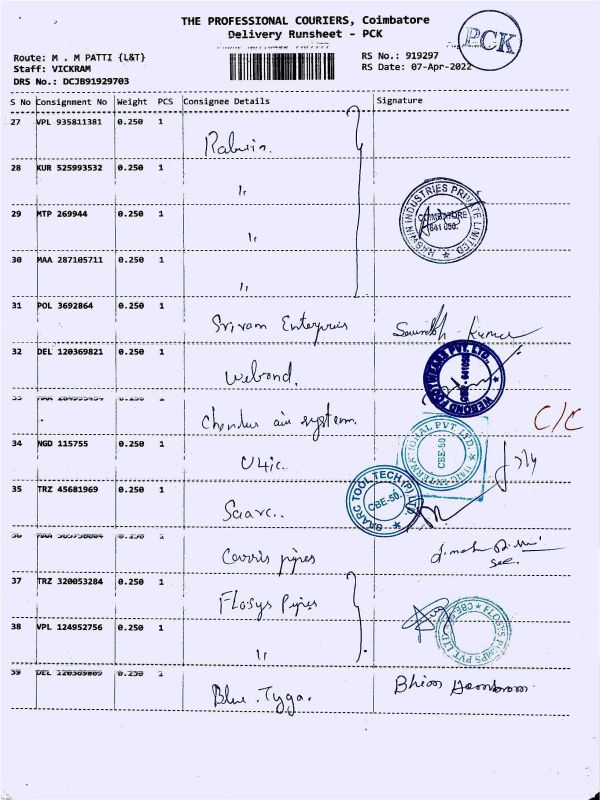 THE PROFESSIONAL COURIERS, Coimbatore
Delivery Runsheet - PCK
PCK
Route: M . M PATTI {L&T}
Staff: VICKRAM
DRS No.: DCJB91929703
RS No.: 919297
RS Date: 07-Apr-2022
S No Consignment No Weight PCS Consignee Details Signature
27 VPL 935811381 0.250 1
28 KUR 525993532 0.250 1 "
29 MTP 269944 0.250 1 "
HASWIN INDUSTRIES PRIVATE LIMITED
COIMBATORE
641 050.
30 MAA 287105711 0.250 1 "
31 POL 3692864 0.250 1 Sriram Enterprises Kumar
32 DEL 120369821 0.250 1 Webond.
WEBOND FOOTWEARS PVT. LTD.
33 0.250 1 air system. C/C
34 NGD 115755 0.250 1 U4ic.
U4IC INTERNATIONAL PVT. LTD.
CBE-50.
35 TRZ 45681969 0.250 1 Saarc..
SAARC TOOL TECH (P) LTD
CBE-50.
36 0.250 1 Carris pipes
37 TRZ 320053284 0.250 1 Flosys Pipes
FLOSYS PUMPS PVT LTD
38 VPL 124952756 0.250 1 "
39 DEL 120369809 0.250 1 Blue Tyga. Bhim